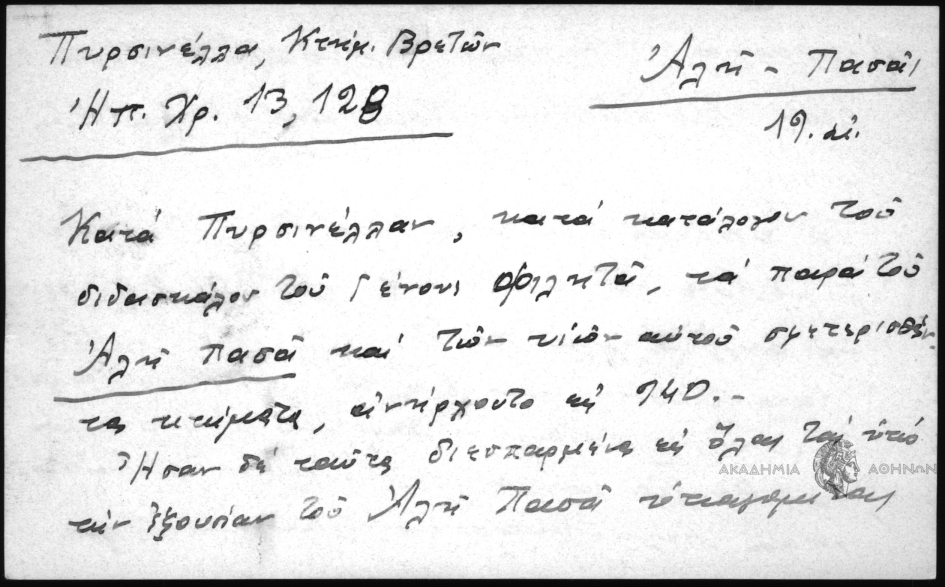 Πυρσινέλλα, Κτημ. Βρετῶν
Ἀλῆ - Πασᾶς
Ἠπ. Χρ. 13, 128
19. αἰ.
Κατά Πυρσινέλλαν, κατά κατάλογον τοῦ
διδασκάλου τοῦ Γένους Φιλητᾶ, τά παρά τοῦ
Ἀλῆ Πασᾶ καί τῶν υἱῶν αὐτοῦ σφετερισθέν-
τα κτήματα, ἀνήρχοντο εἰς 940.-
Ἦσαν δέ ταῦτα διεσπαρμένα εἰς ὅλας τάς ὑπό
τήν ἐξουσίαν τοῦ Ἀλῆ Πασᾶ ὑπαγομένας
ΑΚΑΔΗΜΙΑ ΑΘΗΝΩΝ